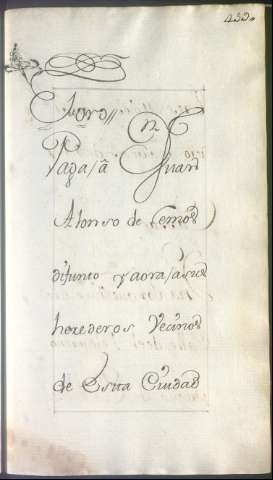 Oloros
Paga / â Juan
Alonso de Lemos
difunto y aora / a sus
herederos Vecinos
de Esta Ciudad